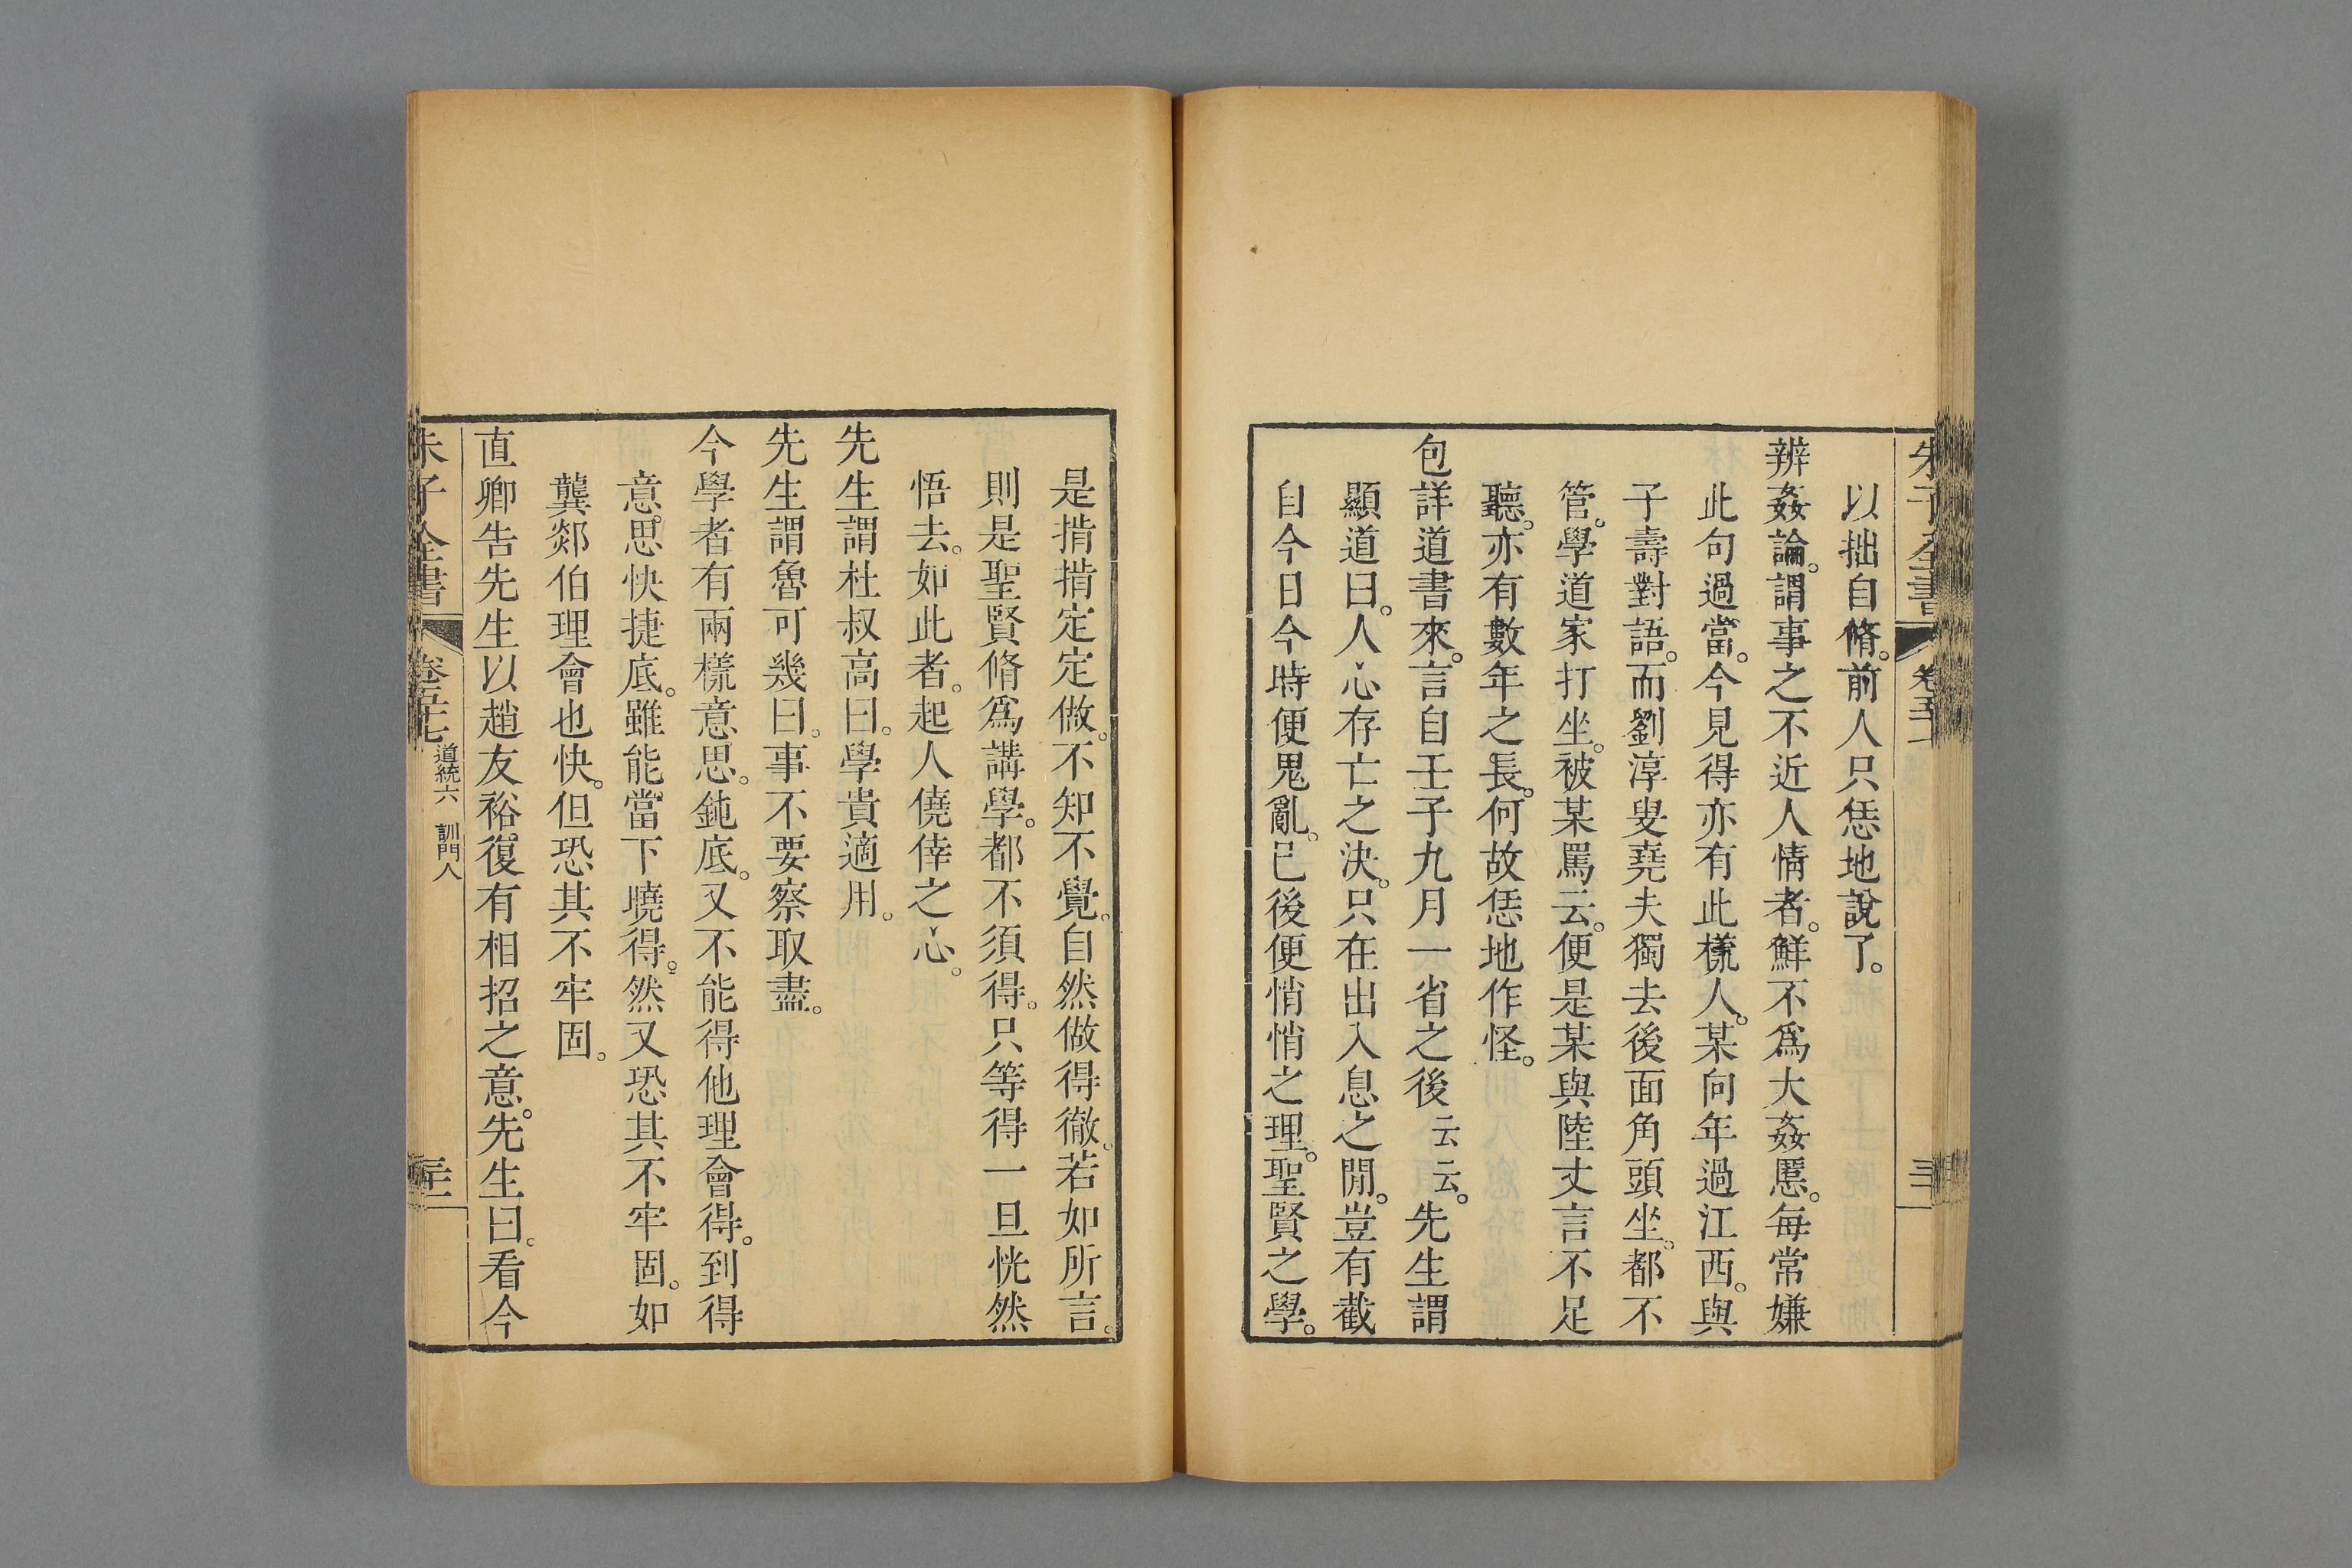 以拙自脩。前人只恁地說了。
辨姦論。謂事之不近人情者。鮮不爲大姦慝。每常嫌
此句過當。今見得亦有此樣人。某向年過江西。與
子壽對語。而劉淳叟堯夫獨去後面角頭坐。都不
管。學道家打坐。被某罵云。便是某與陸丈言不足
聽。亦有數年之長。何故恁地作怪。
包詳道書來。言自壬子九月一省之後云云。先生謂
顯道曰。人心存亡之決。只在出入息之閒。豈有截
自今日今時便鬼亂。已後便悄悄之理。聖賢之學。
是掯掯定定做。不知不覺。自然做得徹。若如所言。
則是聖賢脩爲講學。都不須得。只等得一旦恍然
悟去。如此者。起人僥倖之心。
先生謂杜叔高曰。學貴適用。
先生謂魯可幾曰。事不要察取盡。
今學者有兩樣意思。鈍底。又不能得他理會得。到得
意思快捷底。雖能當下曉得。然又恐其不牢固。如
龔郯伯理會也快。但恐其不牢固。
直卿告先生以趙友裕復有相招之意。先生曰。看今
朱子全書
卷五十七
道統六 訓門人